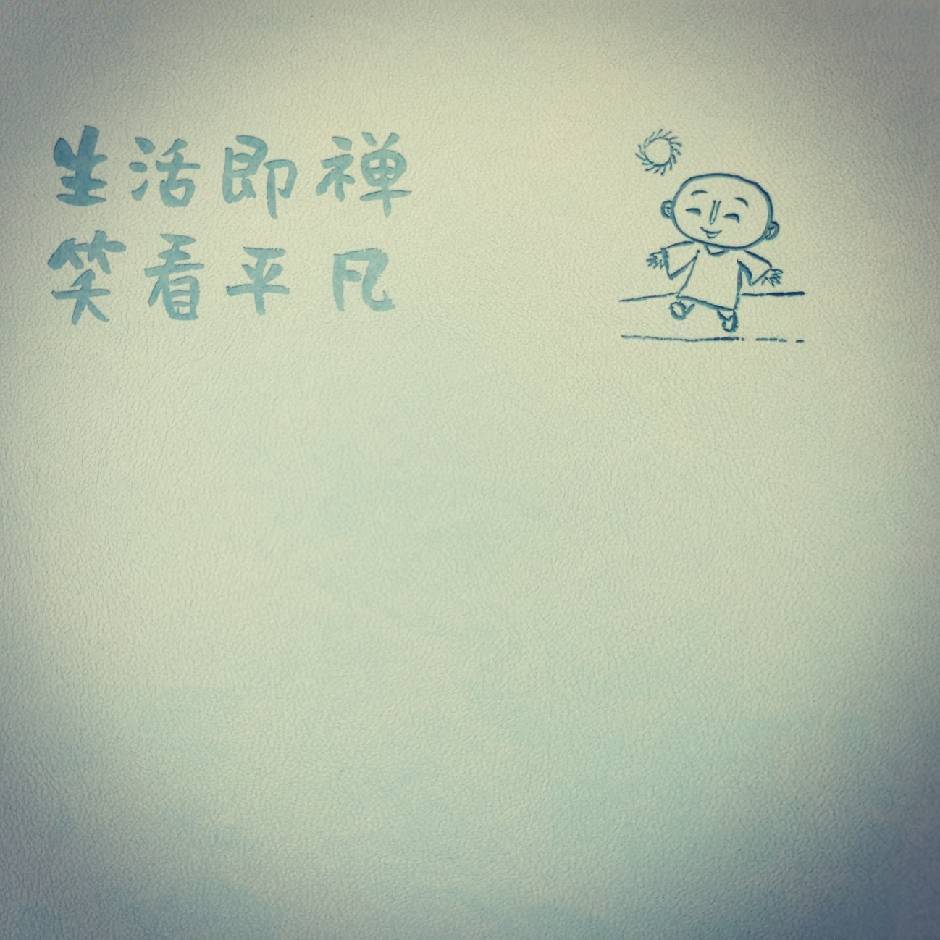 生活即禅
笑看平凡